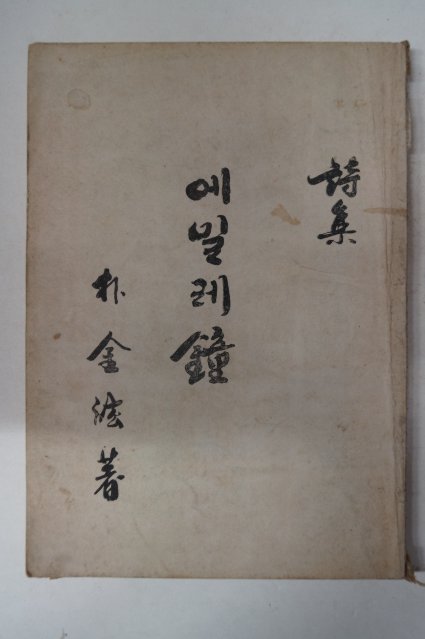 詩集
에밀레鐘
朴金泫著